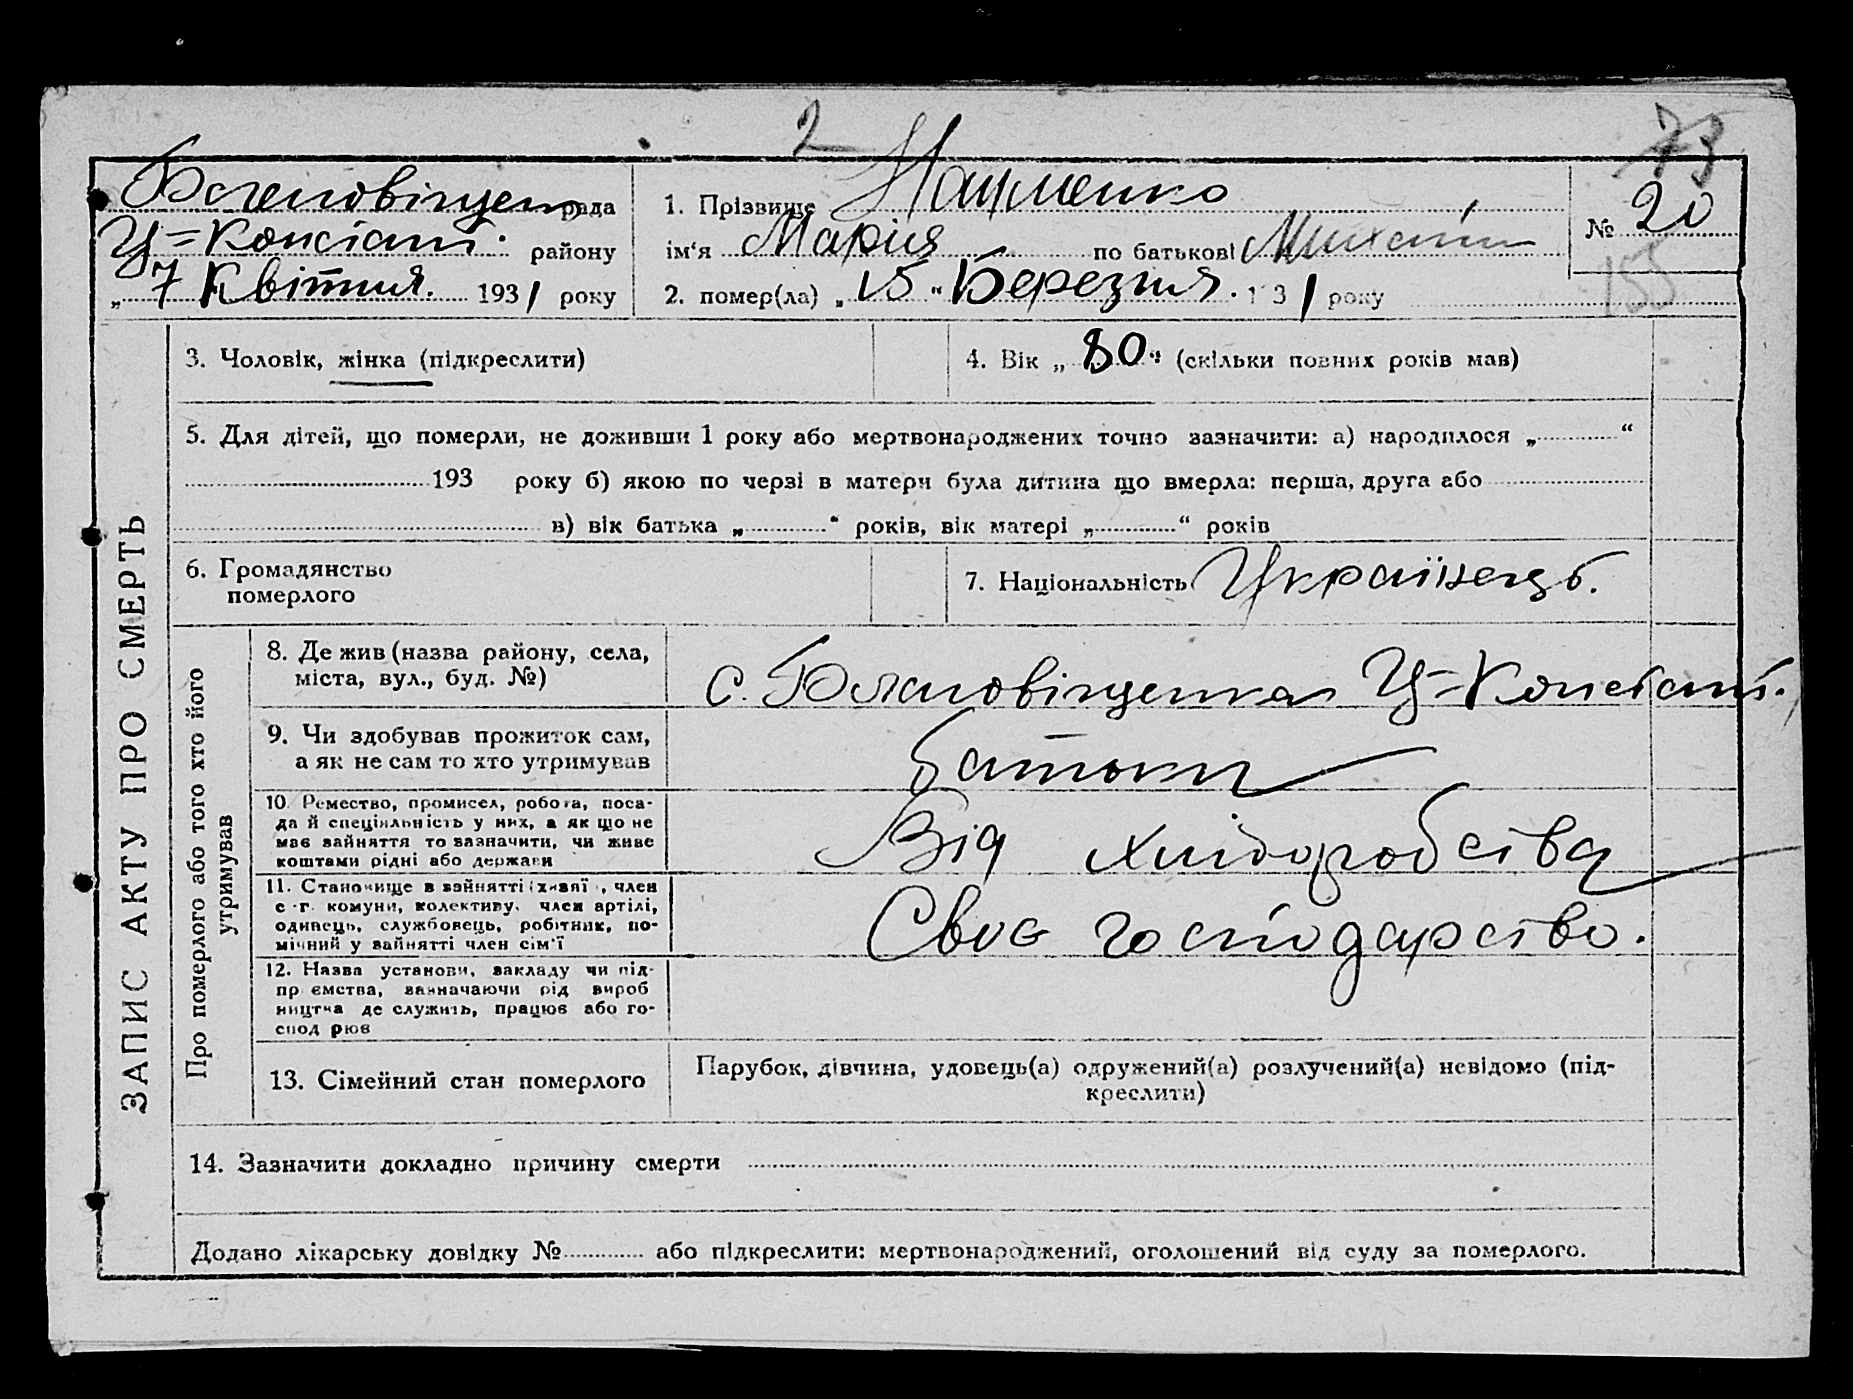 2
75
Благовіщен рада
Ц=Констант. району
„ 7 Квітня. 1931 року
1. Прізвище Науменко
ім‘я Мария по батькові Михай
2. помер(ла) „ 15 “ Березня. 1931 року
№ 20
155
3. Чоловік, жінка (підкреслити)
4. Вік „ 80 “ (скільки повних років мав)
5. Для дітей, що померли, не доживши 1 року або мертвонароджених точно зазначити: а) народилося „ “
193 року б) якою по черзі в матери була дитина що вмерла: перша, друга або
в) вік батька „ “ років, вік матері „ “ років
6. Громадянство
померлого
7. Національність Українець.
ЗАПИС АКТУ ПРО СМЕРТЬ
Про померлого або того хто його
утримував
8. Де жив (назва району, села,
міста, вул., буд. №)
с. Благовіщенка Ц=Констант.
9. Чи здобував прожиток сам,
а як не сам то хто утримував
батьки
10. Ремество, промисел, робота, поса-
да й спеціяльність у них, а як що не
мав зайняття то зазначити, чи живе
коштами рідні або держави
Від хліборобства
11. Становище в зайнятті (хазяї, член
с-г. комуни, колективу, член артілі,
одинець, службовець, робітник, по-
мічний у зайнятті член сім‘ї
Своє господарство.
12. Назва установи, закладу чи під-
приємства, зазначаючи рід вироб
ництва де служить, працює або го-
спод рює
13. Сімейний стан померлого
Парубок, дівчина, удовець(а) одружений(а) розлучений(а) невідомо (під-
креслити)
14. Зазначити докладно причину смерти
Додано лікарську довідку № або підкреслити: мертвонароджений, оголошений від суду за померлого.